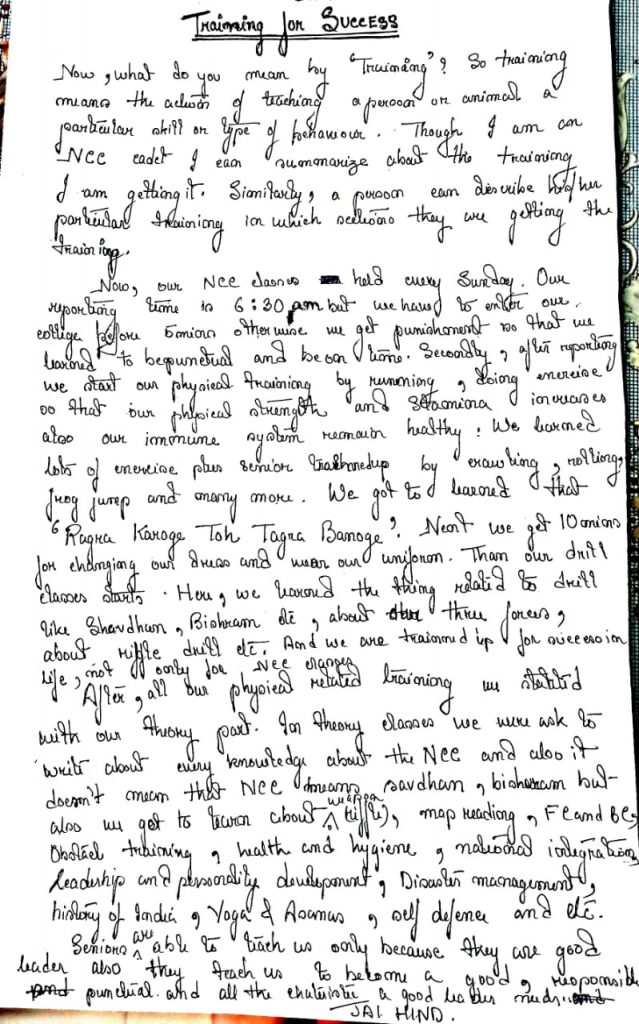 Training for Success
Now, what do you mean by "Training"? So training
means the action of teaching a person or animal a
particular skill or type of behaviour. Though I am an
NCC cadet I can summarize about the training
I am getting it. Similarly, a person can describe his/her
particular training in which sections they are getting the
training.
Now, our NCC classes held every Sunday. Our
reporting time is 6:30 am but we have to enter our
collge before 5mins otherwise we get punishment so that we
learned to be punctual and be on time. Secondly, after reporting
we start our physical training by running, doing exercise
so that our physical strength and stamina increases
also our immune system remain healthy. We learned
lots of exercise plus senior by crawling, rolling,
frog jump and many more. We got to learned that
"Ragra Karoge Toh Tagra Banoge". Next we get 10mins
for changing our dress and wear our uniform. Than our drill
classes starts. Here, we learned the thing related to drill
like Shavdhan, Bishram etc, about three forces,
about riffle drill etc. And we are trainned up for success in
life, not only for NCC
After, all our physical related training we statted
with our theory part. In theory classes we were ask to
write about every knowledge about the NCC and also it
doesn't mean that NCC means savdhan, bisheram but
also we get to learn about weapon (riffle), map reading, FC and BC,
Obstacl training, health and hygiene, national integration,
leadership and personality development, Disaster management,
history of India, Yoga & Asanas, self defence and etc.
Seniors are able to teach us only because they are good
leader also they teach us to become a good, responsible
punctual and all the a good leader needs.
JAI HIND.